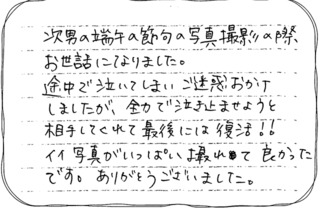 次男の端午の節句の写真撮影の際、
お世話になりました。
途中で泣いてしまいご迷惑おかけ
しましたが、全力で泣き止ませようと
相手してくれて最後には復活!!
イイ写真がいっぱい撮れて良かった
です。ありがとうございました。